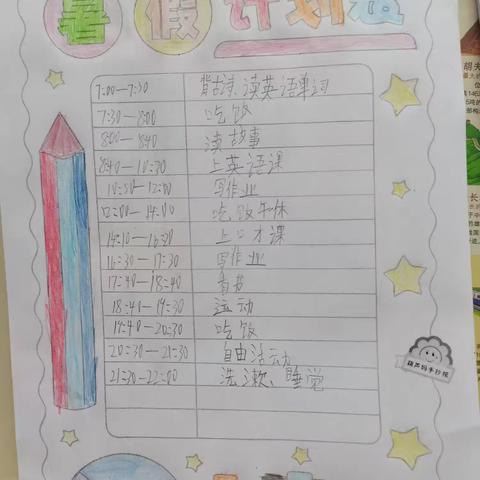 暑假计划表
7:00—7:30 背古诗、读英语单词
7:30—8:00 吃饭
8:00—8:40 读故事
8:40—10:30 上英语课
10:50—12:00 写作业
12:00—14:00 吃饭午休
14:10—16:20 上口才课
16:30—17:30 写作业
17:40—18:40 看书
18:40—19:30 运动
19:40—20:30 吃饭
20:30—21:30 自由活动
21:30—22:00 洗漱、睡觉
葫芦妈手抄报
胡夫
长